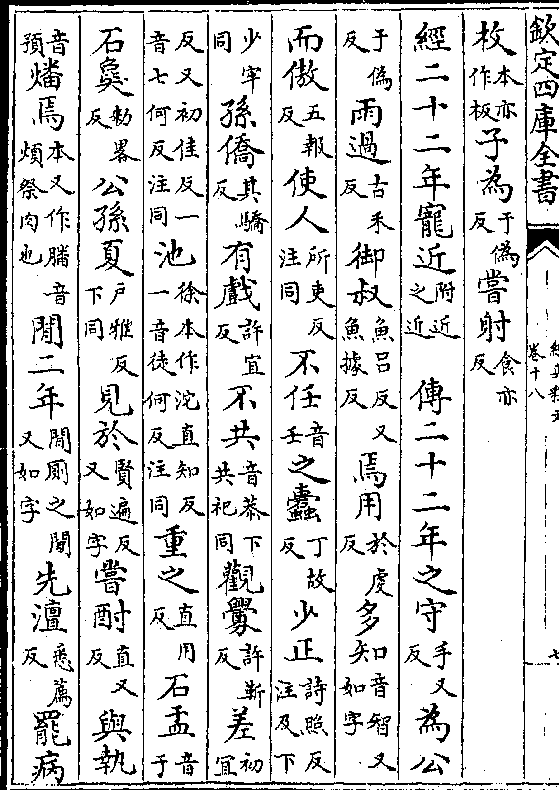 欽定四庫全書
經典釋文
卷十八
七
枚本亦作板子為于偽反嘗射食亦反
經二十二年寵近附近之近　傳二十二年之守手又反為公
于偽反雨過古禾反御叔魚呂反又魚據反焉用於虔反多知音智又如字
而傲五報反使人所吏反注同不任音壬之蠧丁故反少正詩照反注及下
少宰同孫僑其驕反有戲許宜反不共音恭下共祀同觀釁許靳反差初宜
反又初佳反一音七何反注同池徐本作沱直知反一音徒何反注同重之直用反石盂音于
石㚟勑畧反公孫夏户雅反下同見於賢遍反又如字嘗酎直又反與執
音預燔焉本又作膰音煩祭肉也閒二年閒厠之閒又如字先澶悉薦反罷病